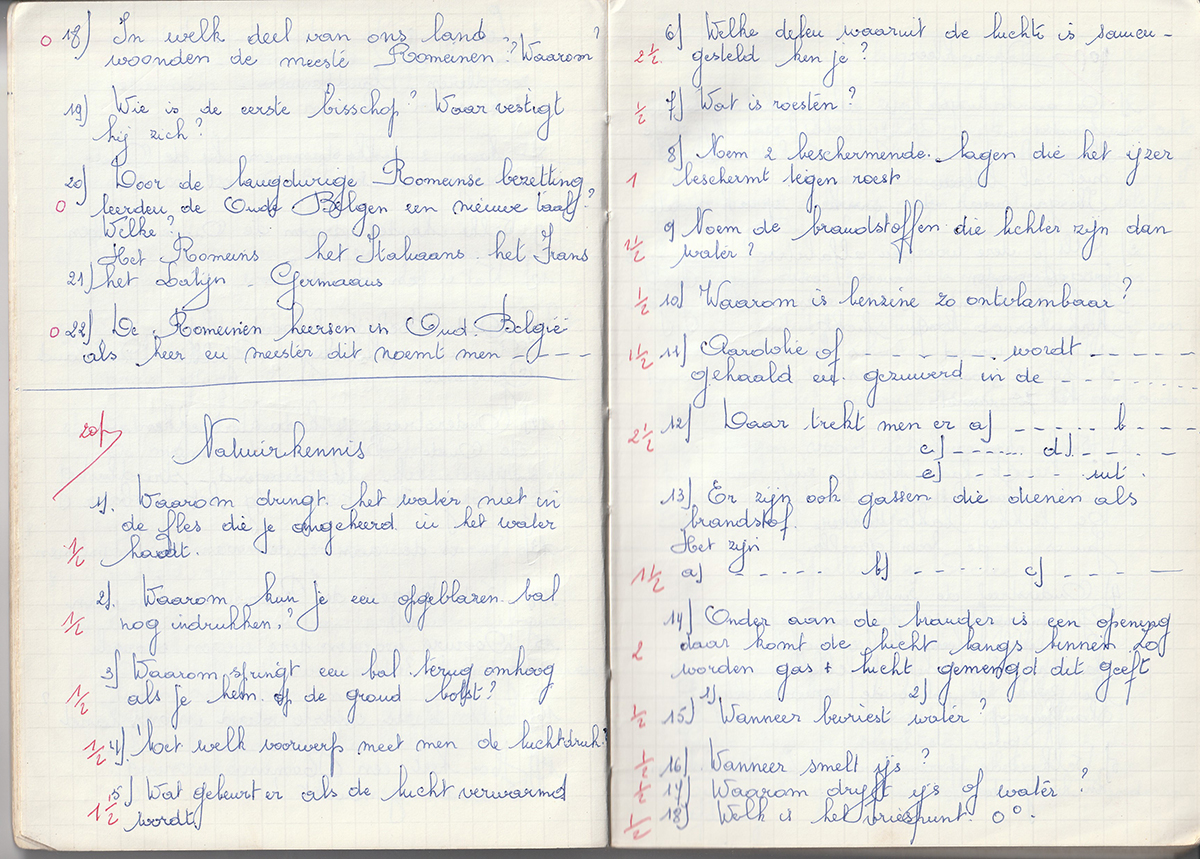 0 18) In welk deel van ons land
woonden de meeste Romeinen? Waarom?
19) Wie is de eerste bisschop? Waar vestigt
hij zich?
20) Door de langdurige Romeinse bezetting
0 leerden de Oude Belgen een nieuwe taal?
Welke?
Het Romeins het Italiaans. het Frans
21) het Latijn - Germaans
0 22) De Romeinen heersen in Oud. België
als heer en meester dit noemt men - - - -
20p
Natuurkennis
1). Waarom dringt. het water niet in
de fles die je omgekeerd in het water
1/2 houdt.
2). Waarom kun je een opgeblazen. bal
1/2 nog indrukken.?
3) Waarom springt een bal. terug omhoog
1/2 als je hem. op de grond botst?
1/2 4). Met welk voorwerp meet men de luchtdruk?
1 1/2 5) Wat gebeurt er als de lucht verwarmd
wordt.
6) Welke delen waaruit de lucht is samen-
2 1/2 gesteld ken je?
1/2 7) Wat is roesten?
8) Noem 2 beschermende. lagen die het ijzer
1 beschermt tegen roest
9 Noem de brandstoffen die lichter zijn dan
1 1/2 water?
1/2 10) Waarom is benzine zo ontvlambaar?
1 1/2 11) Aardolie of - - - - - - - . wordt - - - - -
gehaald en. gezuiverd in de - - - - - - - - -
2 1/2 12) Daar trekt men er a) - - - - - - b - - - -
c) - - - - - - d) - - - - -
e) - - - - - - uit.
13) Er zijn ook gassen die dienen als
brandstof.
Het zijn
1 1/2 a) - - - - - b) - - - - - c) - - - -
14) Onder aan de brander is een opening
2 daar komt de lucht langs binnen zo
worden gas + lucht gemengd dit geeft
1) 2)
1/2 15) Wanneer bevriest water?
1/2 16) Wanneer smelt ijs ?
1/2 17) Waarom drijft ijs op water?
1/2 18) Welk is het vriespunt. 0°.